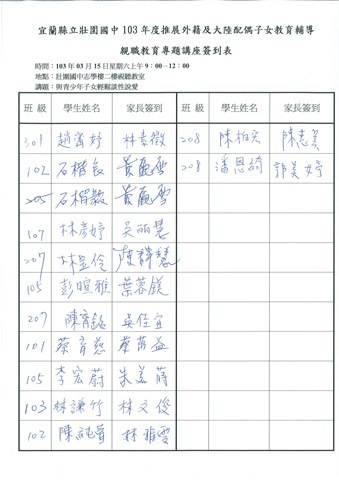 宜蘭縣立壯圍國中 103 年度推展外籍及大陸配偶子女教育輔導
親職教育專題講座簽到表
時間：103 年 03 月 15 日星期六上午 9：00－12：00
地點：壯圍國中志學樓二樓視聽教室
講題：與青少年子女輕鬆談性說愛
班 級 學生姓名 家長簽到 班 級 學生姓名 家長簽到
301 趙 婷 林素微 208 陳柏宏 陳志
102 石楷 黃麗雪 208 潘恩綺 郭美婷
205 石楷 黃麗雪
107 林彥婷 吳丽慧
207 林昱伶 陳靜慧
105 彭暄雅 葉蓉鎂
207 陳育銘 吳佳宜
101 蔡育慈 蔡 益
105 李宏蔚 朱美
103 林謙竹 林文俊
102 陳純萱 林雅雯